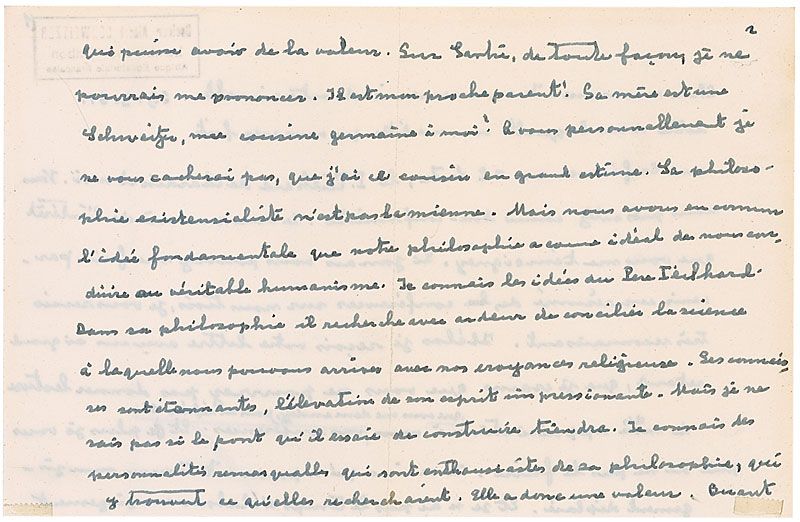 2
qui puisse avoir de la valeur. Sur Sartre, de toute façon, je ne
pourrais me prononcer. Il est mon proche parent! Sa mère est une
Schweitzer, une cousine germaine à moi! A vous personnellement je
ne vous cacherai pas, que j'ai ce cousin en grand estime. Sa philoso-
phie existensialiste n'est pas la mienne. Mais nous avons en commun
l'idée fondamentale que notre philosophie a comme idéal de nous con-
duire au véritable humanisme. Je connais les idées du Père Teilhard.
Dans sa philosophie il recherche avec ardeur de concilier la science
à laquelle nous pouvons arriver avec nos croyances religieuse. Ses connais-
ses sont étonnantes, l'élévation de son esprit impressionante. Mais je ne
sais pas si le pont qu'il essaie de construire tiendra. Je connais des
personnalités remarquables qui sont enthousiastes de sa philosophie, qui
y trouvent ce qu'elles recherchaient. Elle a donc une valeur. Quant